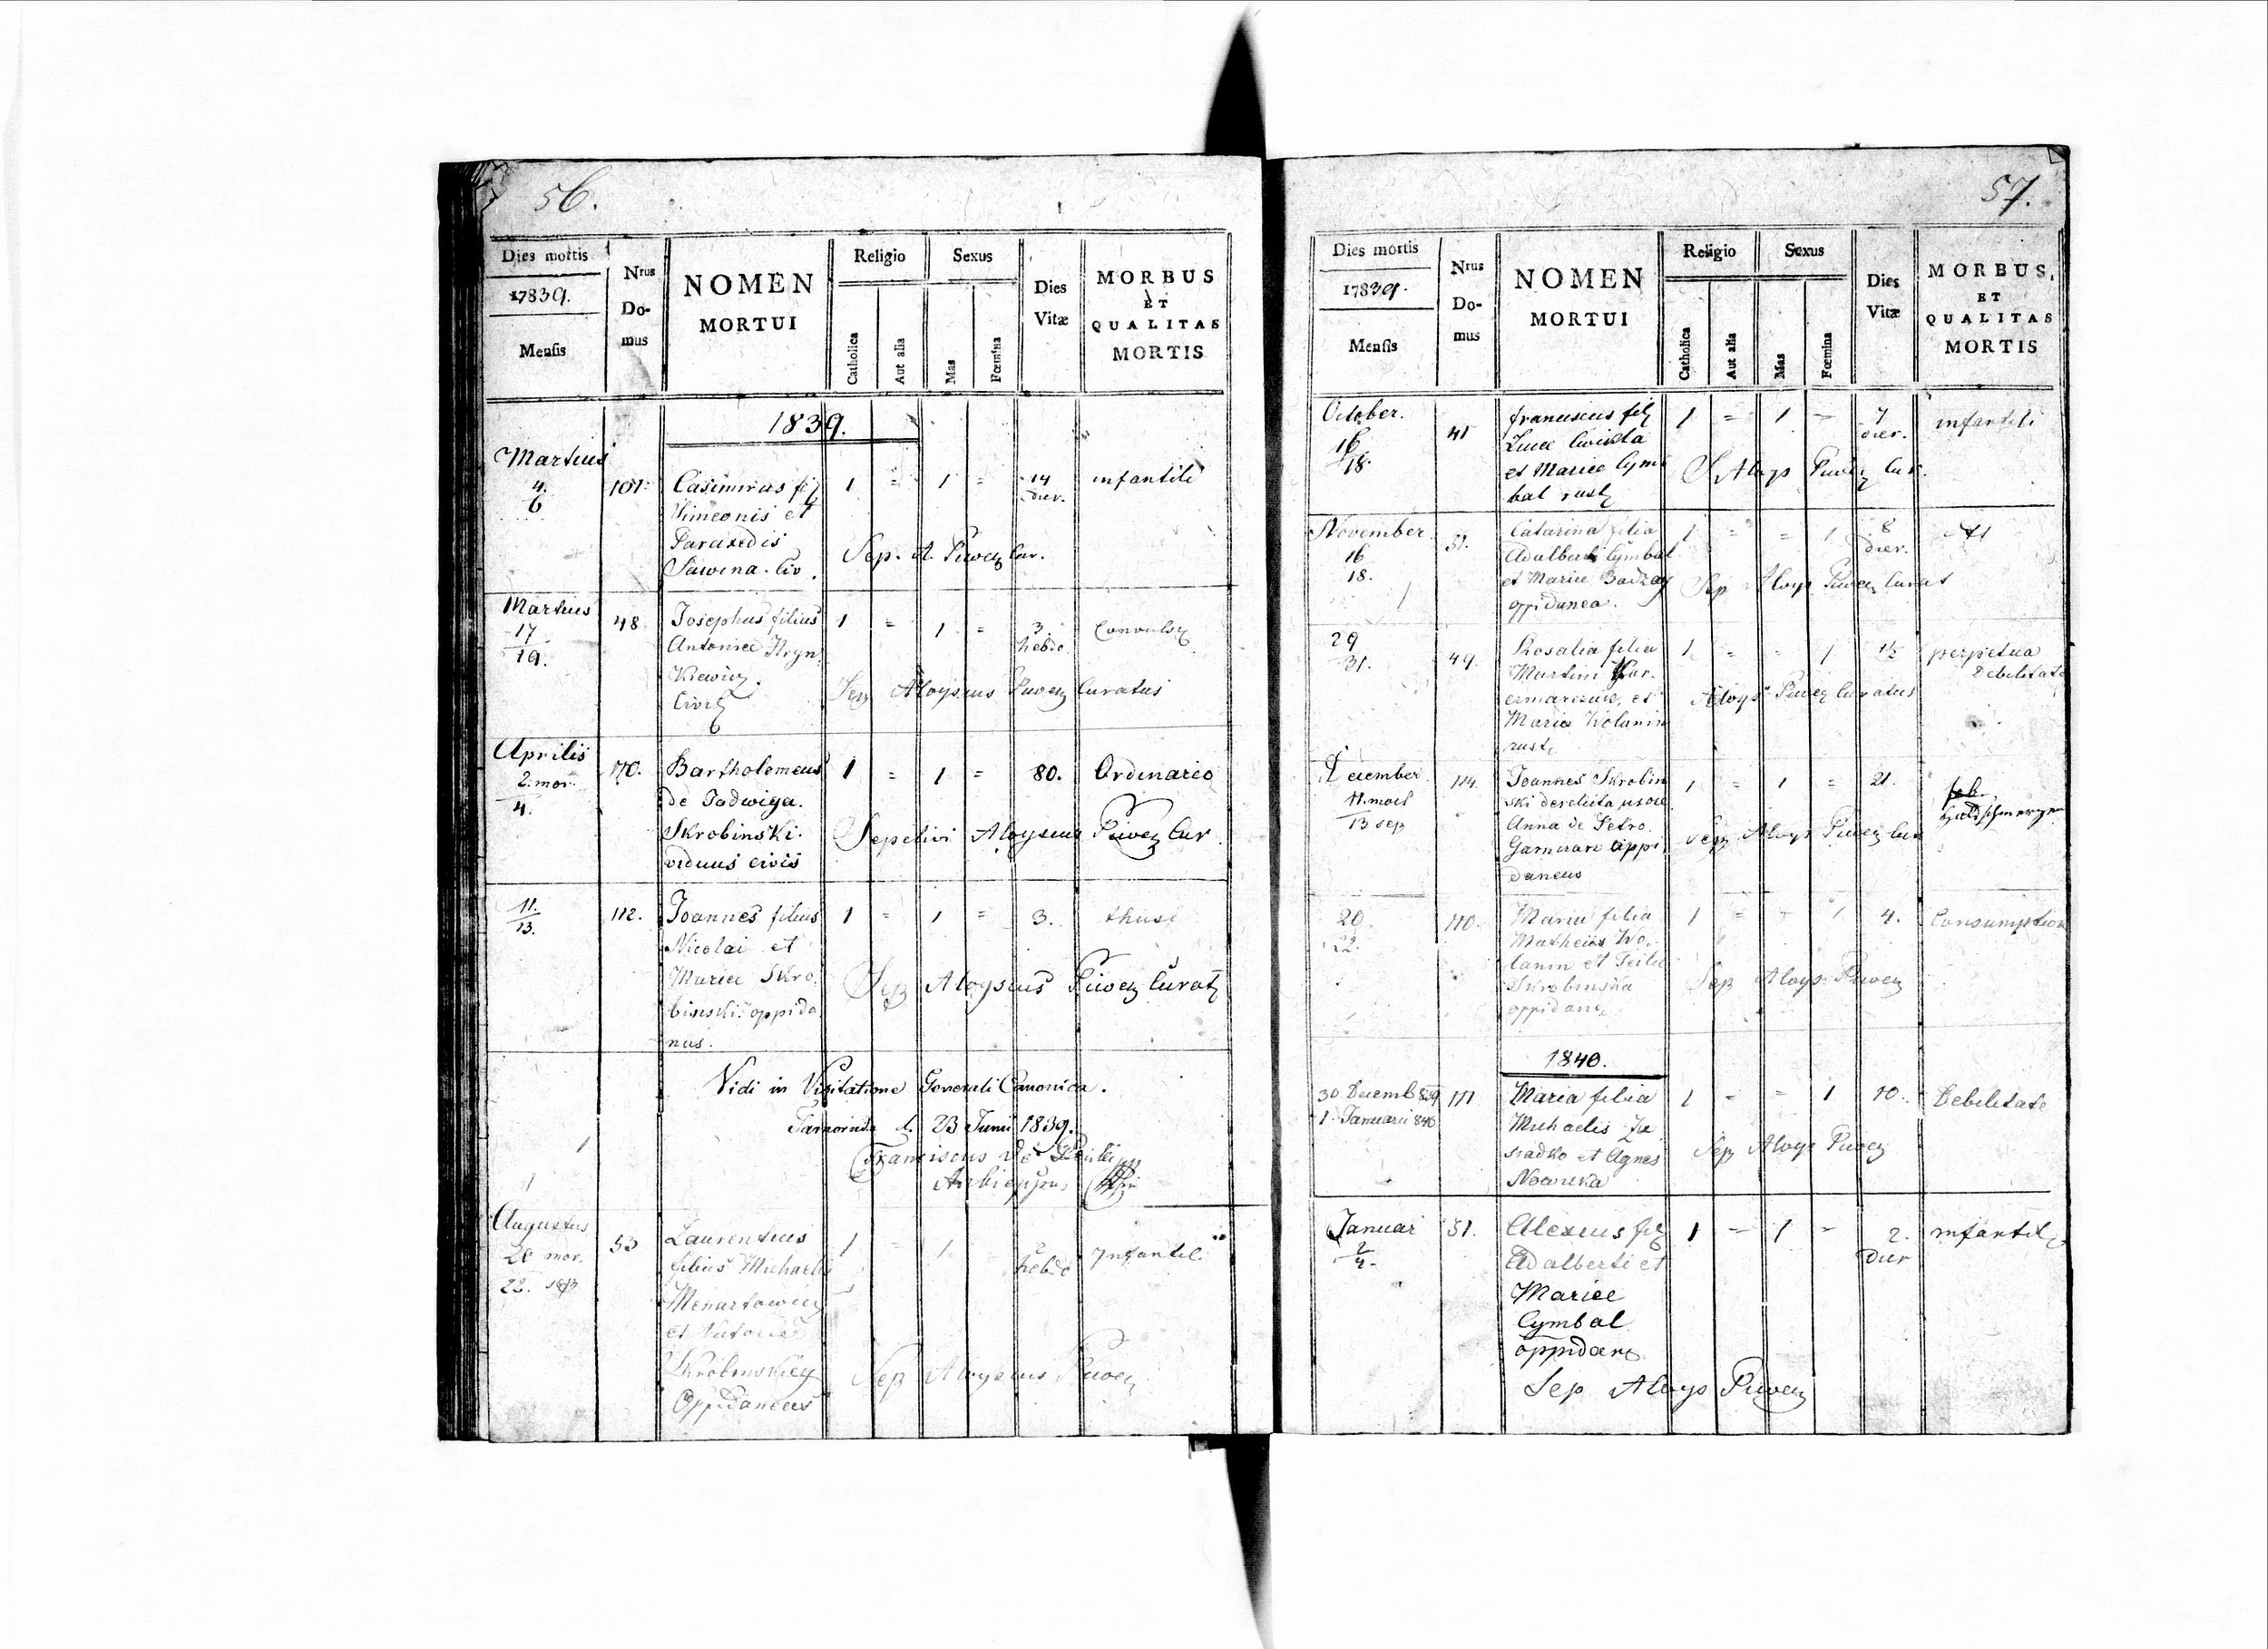 56.
Dies mortis
17839.
Mensis
Nrus
Do-
mus
NOMEN
MORTUI
Religio
Catholica
Aut alia
Sexus
Mas
Fœmina
Dies
Vitæ
MORBUS
ET
QUALITAS
MORTIS
1839.
Martius
4.
6
107.
Casimirus fil
Simeonis et
Paraxedis
Sawina. Civ.
1 = 1 =
14
dier.
infantili
Sep. A. Piwez Cur.
Martius
17
19.
48
Josephus filius
Antoniae Hryn
kiewicz.
Civis
1 = 1 =
3.
hebdo.
Convuls
Sep Aloysius Piwez Curatus
Aprilis
2. mor.
4.
170.
Bartholomeus
de Jadwiga.
Skrobinski.
viduus civis
1 = 1 =
80.
Ordinario
Sepelivi Aloysius Piwez Cur
11.
13.
112.
Joannes filius
Nicolai et
Mariae Skro
binski. oppida
nus.
1 = 1 =
3.
thusi
Sep Aloysius Piwez Curat
Vidi in Visitatione Generali Canonica.
d. 23 Junii 1839.
Franciscus de
Augustus
20 mor.
22. sep
53
Laurentius
filius Michaelis
Menartowicz
et
Oppidaneus
1 = 1
2
hebdo
Infantil.
Sep Aloysius Piwez
57.
Dies mortis
17839.
Mensis
Nrus
Do-
mus
NOMEN
MORTUI
Religio
Catholica
Aut alia
Sexus
Mas
Fœmina
Dies
Vitæ
MORBUS,
ET
QUALITAS
MORTIS
October.
16
18.
41
franciscus fil
Lucae Cwikla
et Mariae Cym
bal rust
1 = 1 =
7
dier.
infantili
S. Aloys Piwez Cur.
November
16
18.
51.
Catarina filia
Adalberti Cymbal
et Mariae
oppidanea.
1 = = 1
8
dier.
Sep Aloys Piwez Curat
29
31.
49.
Rosalia filia
Martini
et
Maria Wolanin
rust.
1 = = 1
1½
perpetua
debilitate
Aloys Piwez Curatus
December
11. mort
13 sep
114.
Joannes Skrobin
ski derelicta uxore
Anna de Petro
oppi
daneus
1 = 1 =
21.
Sep Aloys Piwez Cur
20
22.
110.
Maria filia
Matheis Wo
lanin et
Skrobinska
oppidan
1 = = 1
4.
Consumption
Sep Aloys Piwez
1840.
30 Decemb 839
1. Januarii 840
111
Maria filia
Michaelis
et Agnes
1 = = 1
10.
Debilitate
Sep Aloys Piwez
Januar
2
4.
51.
Alexius fil
Adalberti et
Mariae
Cymbal
oppidan
1 = 1 =
2.
dier
infantil
Sep Aloys Piwez